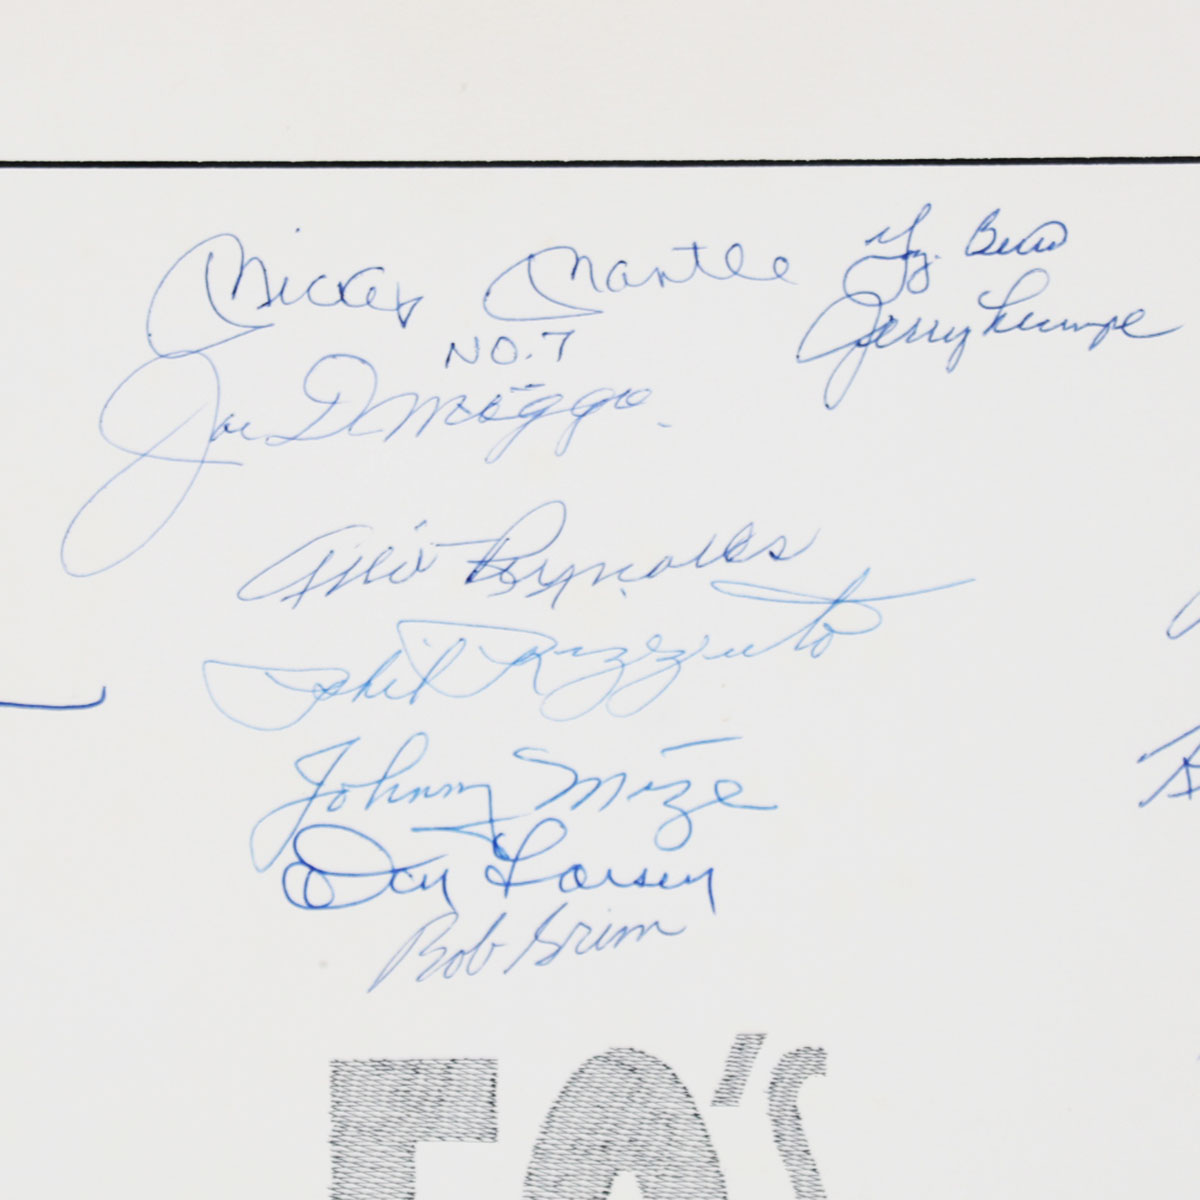 Mickey Mantle
No. 7
Yogi Berra
Jerry Lumpe
Joe DiMaggio
Allie Reynolds
Phil Rizzuto
Johnny Mize
Don Larsen
Bob Grim
50's